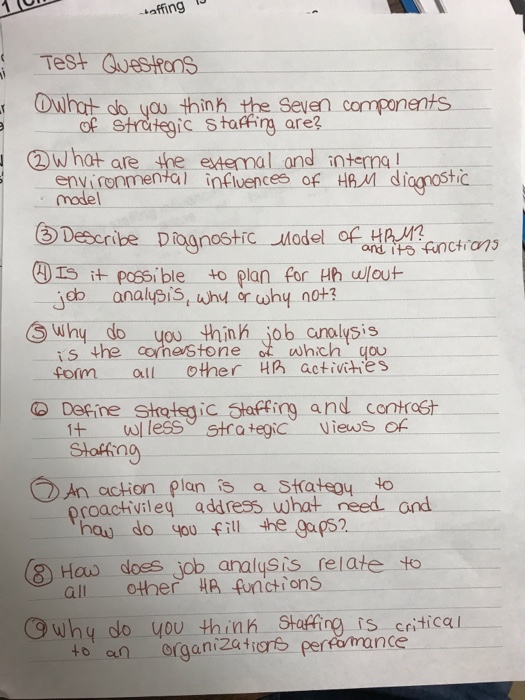 taffing
Test Questions
① what do you think the seven components
of strategic staffing are?
② what are the external and internal
environmental influences of HRM diagnostic
model
③ Describe Diagnostic Model of HRM?
and its functions
④ Is it possible to plan for HR w/out
job analysis, why or why not?
⑤ Why do you think job analysis
is the cornerstone of which you
form all other HR activities
⑥ Define strategic staffing and contrast
it w/less strategic views of
Staffing
⑦ An action plan is a strategy to
proactiviley address what need and
how do you fill the gaps?
⑧ How does job analysis relate to
all other HR functions
⑨ why do you think staffing is critical
to an organizations performance